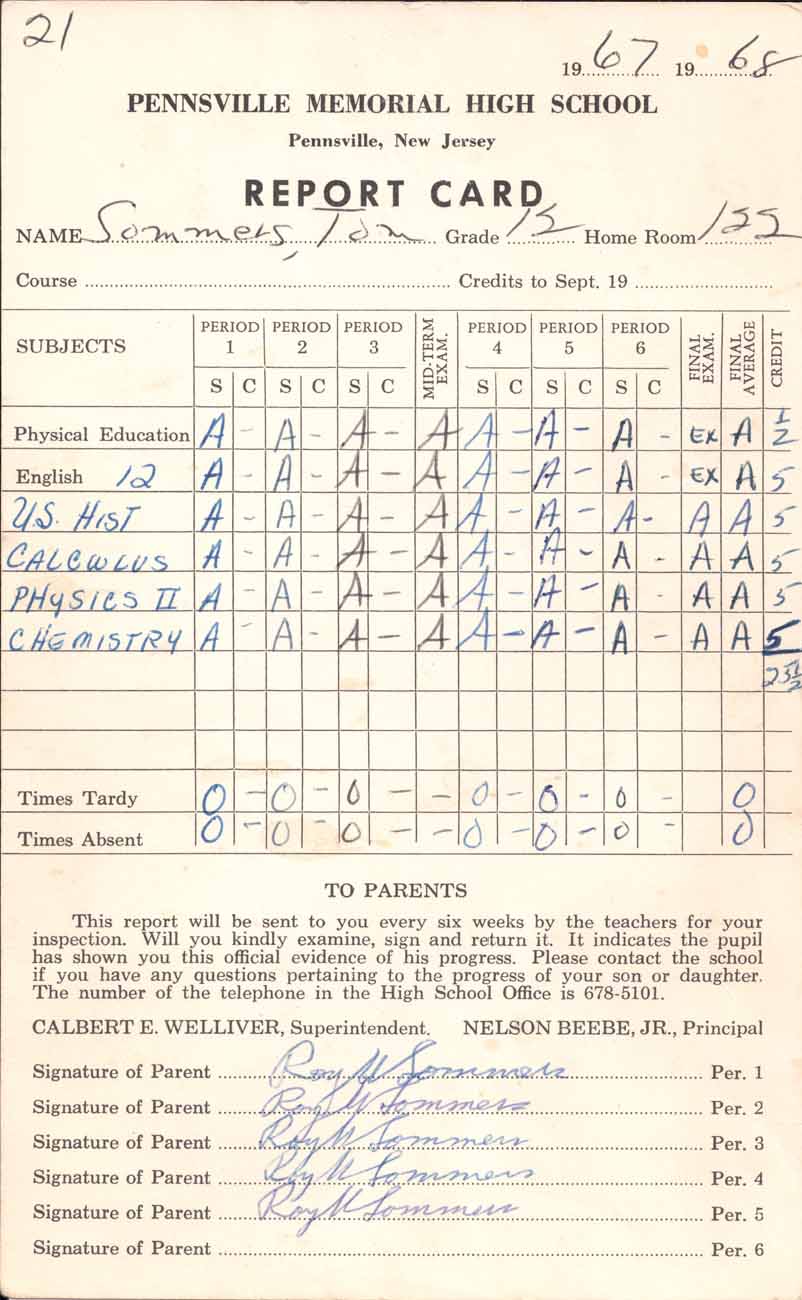 21
1967 1968
PENNSVILLE MEMORIAL HIGH SCHOOL
Pennsville, New Jersey
REPORT CARD
NAME Sommers, Tom Grade 12 Home Room 122
Course Credits to Sept. 19
SUBJECTS PERIOD 1 PERIOD 2 PERIOD 3 MID-TERM EXAM. PERIOD 4 PERIOD 5 PERIOD 6 FINAL EXAM. FINAL AVERAGE CREDIT
S C S C S C S C S C S C
Physical Education A - A - A - A A - A - A - EX A 1/2
English 12 A - A - A - A A - A - A - EX A 5
U.S. HIST A - A - A - A A - A - A - A A 5
CALCULUS A - A - A - A A - A - A - A A 5
PHYSICS II A - A - A - A A - A - A - A A 5
CHEMISTRY A - A - A - A A - A - A - A A 5
25 1/2
Times Tardy 0 - 0 - 0 - - 0 - 0 - 0 - 0
Times Absent 0 - 0 - 0 - - 0 - 0 - 0 - 0
TO PARENTS
This report will be sent to you every six weeks by the teachers for your
inspection. Will you kindly examine, sign and return it. It indicates the pupil
has shown you this official evidence of his progress. Please contact the school
if you have any questions pertaining to the progress of your son or daughter.
The number of the telephone in the High School Office is 678-5101.
CALBERT E. WELLIVER, Superintendent. NELSON BEEBE, JR., Principal
Signature of Parent Roy W Sommers Per. 1
Signature of Parent Roy W Sommers Per. 2
Signature of Parent Roy W Sommers Per. 3
Signature of Parent Roy W Sommers Per. 4
Signature of Parent Roy W Sommers Per. 5
Signature of Parent Per. 6